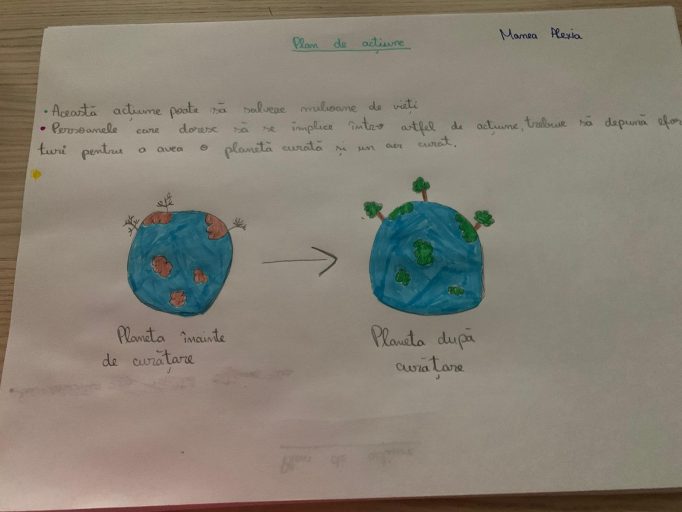 Plan de acțiune
Manea Alexia
• Această acțiune poate să salveze milioane de vieți
• Persoanele care doresc să se implice într-o astfel de acțiune, trebuie să depună efor-
turi pentru a avea o planetă curată și un aer curat.
Planeta înainte
de curățare
Planeta după
curățare